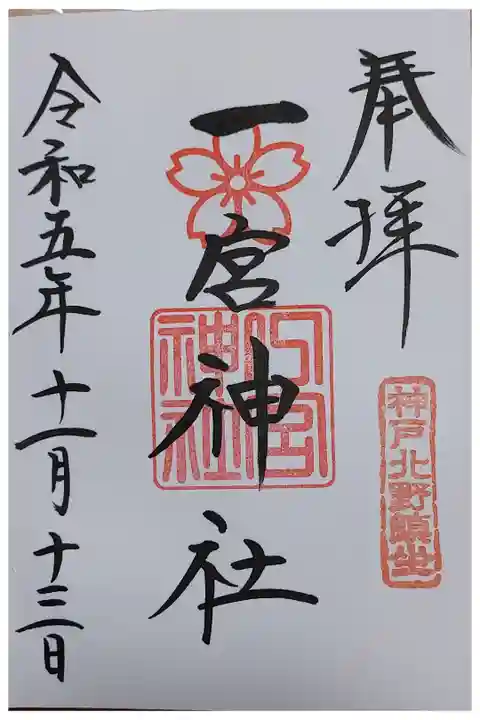 奉拝
神戸北野鎮坐
一宮神社
一宮神社
令和五年十一月十三日